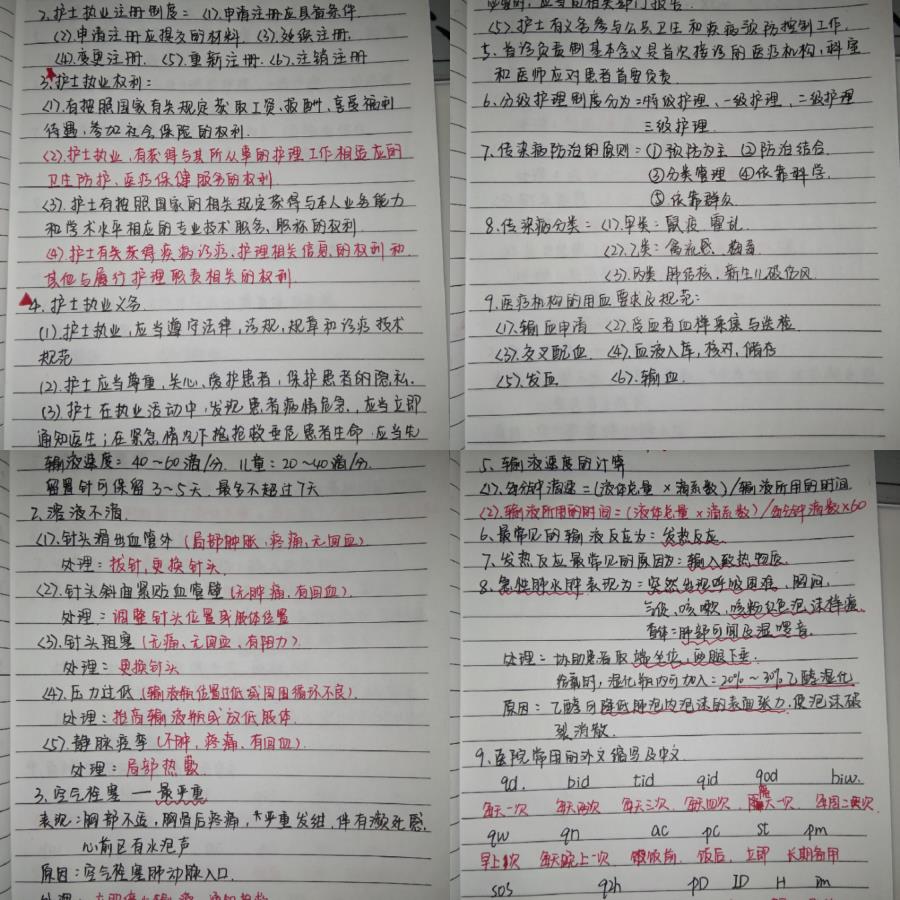 2.护士执业注册制度: (1).申请注册应具备条件.
(2).申请注册应提交的材料. (3).延续注册.
(4).变更注册. (5).重新注册. (6).注销注册
3.护士执业权利:
(1).有按照国家有关规定获取工资、报酬、享受福利
待遇,参加社会保险的权利.
(2).护士执业,有获得与其所从事的护理工作相适应的
卫生防护、医疗保健服务的权利.
(3).护士有按照国家的相关规定获得与本人业务能力
和学术水平相应的专业技术服务、职称的权利.
(4).护士有关获得疾病诊疗、护理相关信息的权利和
其他与履行护理职责相关的权利.
4.护士执业义务.
(1).护士执业,应当遵守法律,法规,规章和诊疗技术
规范
(2).护士应当尊重,关心,爱护患者,保护患者的隐私.
(3).护士在执业活动中,发现患者病情危急,应当立即
通知医生;在紧急情况下抢救垂危患者生命.应当先
(5).护士有义务参与公共卫生和疾病预防控制工作.
5、首诊负责制基本含义是首次接诊的医疗机构,科室
和医师应对患者首要负责.
6.分级护理制度分为:特级护理、一级护理,二级护理
三级护理.
7.传染病防治的原则:①预防为主 ②防治结合
③分类管理 ④依靠科学.
⑤依靠群众
8.传染病分类: (1).甲类:鼠疫 霍乱
(2).乙类:禽流感、梅毒
(3).丙类:肺结核、新生儿破伤风
9.医疗机构的用血要求及规范:
(1).输血申请 (2).受血者血样采集与送检.
(3).交叉配血 (4).血液入库,核对,储存
(5).发血 (6).输血.
输液速度:40~60滴/分. 儿童:20~40滴/分.
留置针可保留3~5天.最多不超过7天
2.溶液不滴.
(1).针头滑出血管外(局部肿胀、疼痛,无回血)
处理:拔针,更换针头.
(2).针头斜面紧贴血管壁(无肿痛,有回血).
处理:调整针头位置或肢体位置
(3).针头阻塞(无痛、无回血、有阻力).
处理:更换针头
(4).压力过低(输液瓶位置过低或周围循环不良).
处理:抬高输液瓶或放低肢体.
(5).静脉痉挛(不肿,疼痛,有回血).
处理:局部热敷.
3.空气栓塞—最严重
表现:胸部不适,胸骨后疼痛,*严重发绀,伴有濒死感.
心前区有水泡声
原因:空气栓塞肺动脉入口.
5、输液速度的计算
(1).每分钟滴速=(液体总量×滴系数)/输液所用的时间
(2).输液所用的时间=(液体总量×滴系数)/每分钟滴数×60
6.最常见的输液反应为:发热反应
7.发热反应最常见的原因为:输入致热物质.
8.急性肺水肿表现为:突然出现呼吸困难,胸闷,
气促、咳嗽、咳粉红色泡沫样痰.
查体:肺部可闻及湿啰音.
处理:协助患者取端坐位,两腿下垂.
给氧时,湿化瓶内可加入:20%~30%乙醇湿化
原因:乙醇可降低肺泡内泡沫的表面张力.使泡沫破
裂消散.
9.医院常用的外文缩写及中文
qd. bid tid qid qod biw.
每天一次 每天两次 每天三次. 每天四次. 隔天一次. 每周二次
qw qn ac pc st pm
每天晚上一次 饭前. 饭后. 立即 长期备用
sos q2h PD ID H im